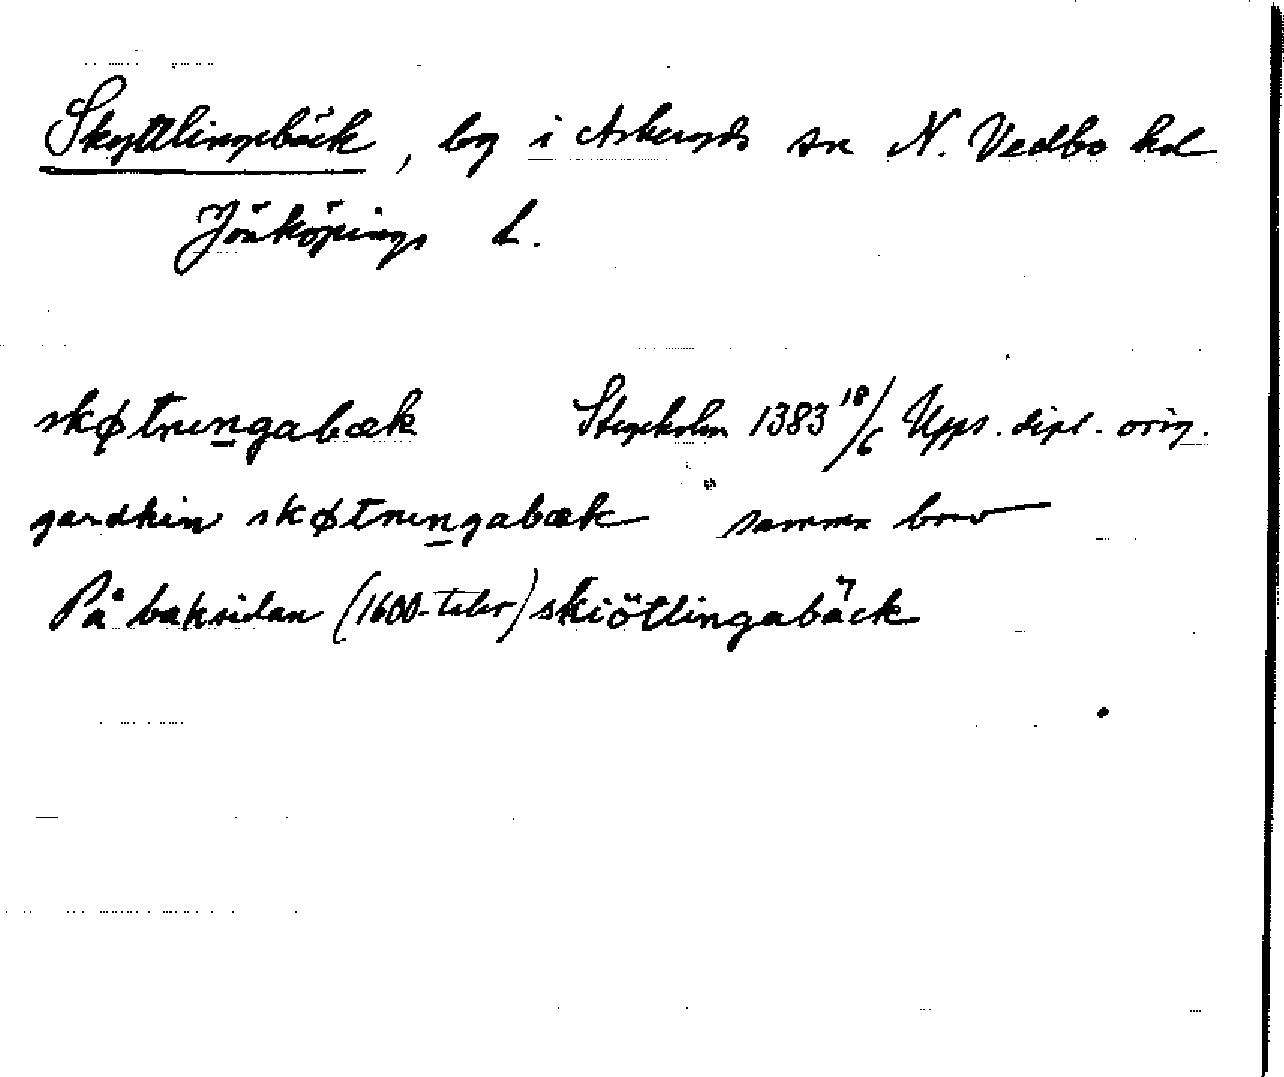 Skyttlingebäck, by i Askeryds sn N. Vedbo hd
Jönköpings l.
skøtnungabæk Stockholm 1383 18/6 Upps. dipl. orig.
gardhin skøtnungabæk samma brev
På baksidan (1600-talet) skiötlingabäck